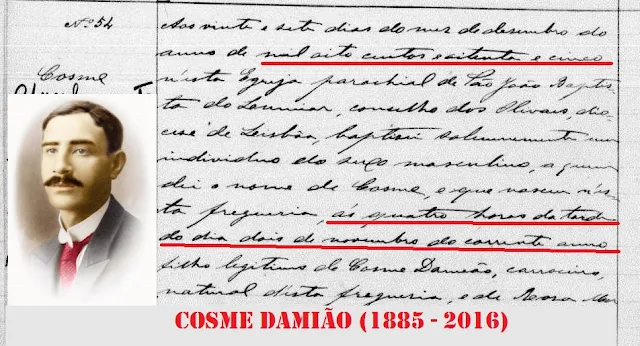 Nº 54
Cosme
Aos vinte e sete dias do mez de desembro do
anno de mil oito centos e oitenta e cinco
n'esta Egreja parochial de São João Baptis-
ta do Lumiar, concelho dos Olivais, dio-
cese de Lisbôa, baptisei solemnemente um
individuo do sexo masculino, a quem
dei o nome de Cosme, e que nasceu n'es-
ta freguezia, ás quatro horas da tarde
do dia dois de novembro do corrente anno
filho legitimo de Cosme Damião, carroceiro,
natural d'esta freguezia, e de Rosa
COSME DAMIÃO (1885 - 2016)